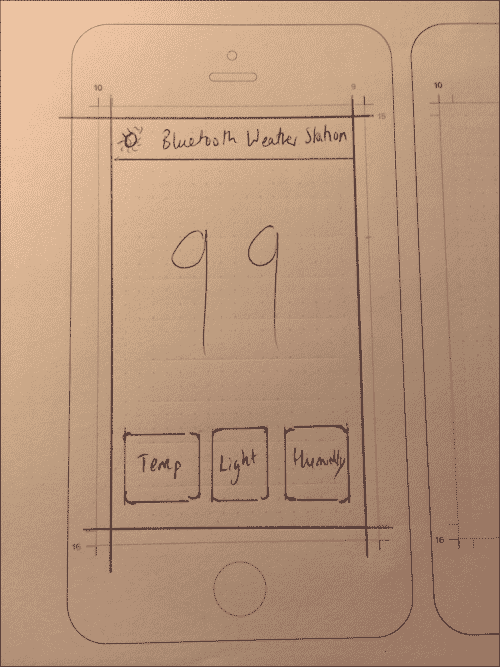 10
9
10
16
Bluetooth Weather Station
99
Temp
Light
Humidity
16
16